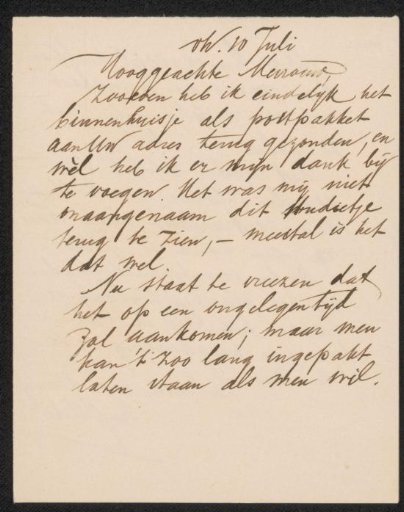 10 Juli
Hooggeachte Mevrouw,
Zooeven heb ik eindelijk het
binnenhuisje als postpakket
aan Uw adres terug gezonden, en
wèl heb ik er mijn dank bij
te voegen. Het was mij niet
onaangenaam dit studietje
terug te zien, – meestal is het
dat wel.
Nu staat te vreezen dat
het op een ongelegen tijd
zal aankomen; maar men
kan 't zoo lang ingepakt
laten staan als men wil.